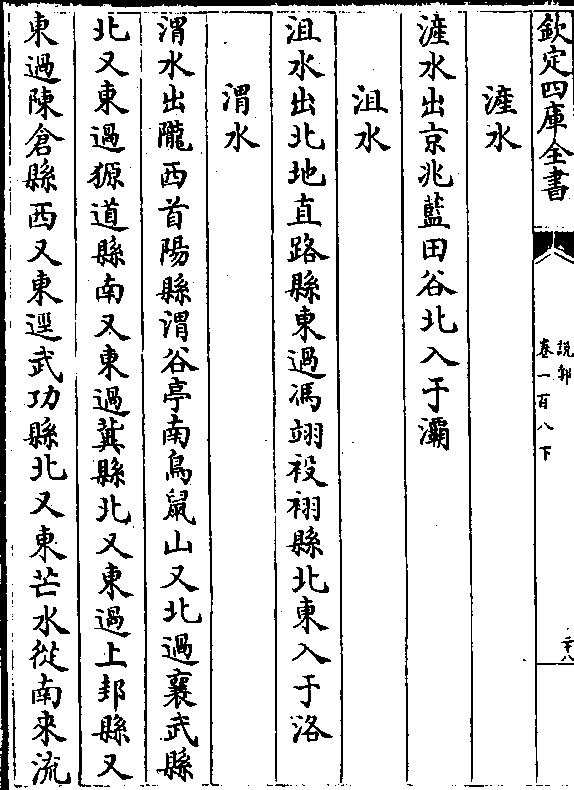 欽定四庫全書
說郛
卷一百八下
二十八
滻水
滻水出京兆藍田谷北入于灞
沮水
沮水出北地直路縣東過馮翊祋祤縣北東入于洛
渭水
渭水出隴西首陽縣渭谷亭南鳥鼠山又北過襄武縣
北又東過獂道縣南又東過冀縣北又東過上邽縣又
東過陳倉縣西又東逕武功縣北又東芒水從南來流